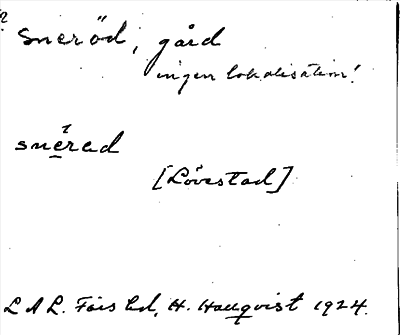 Sneröd, gård
ingen lokalisation!
snérad
[Lövestad]
L A L. Färs hd, H. Hallqvist 1924.